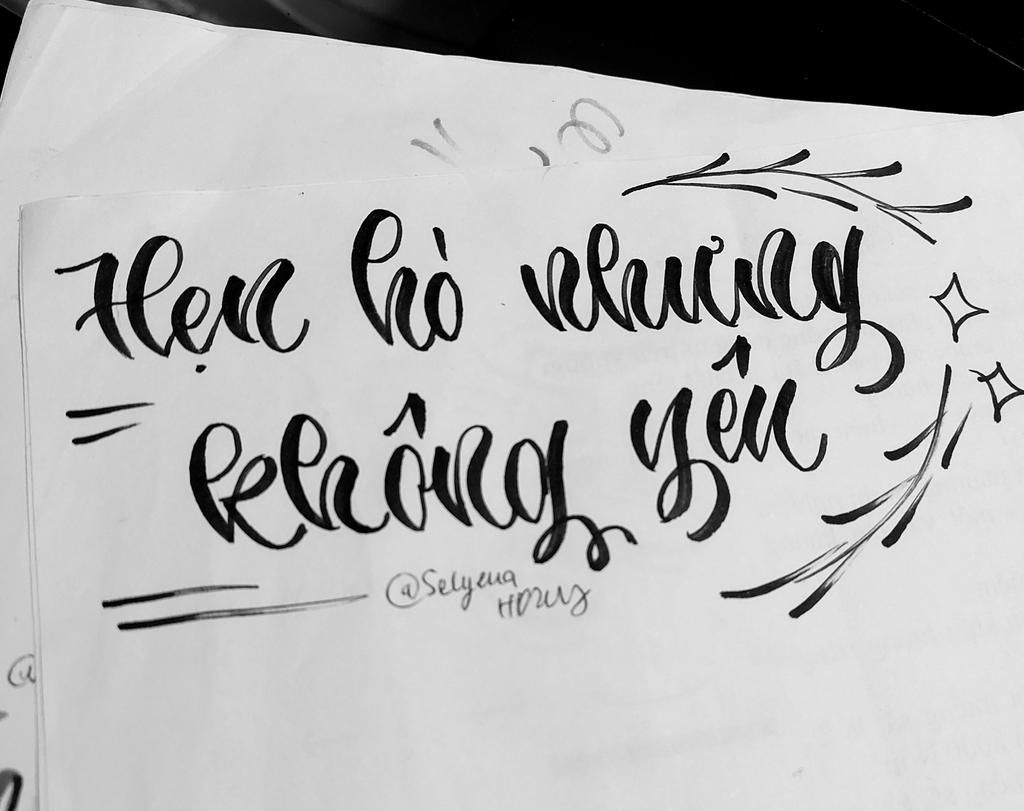 Hẹn hò nhưng
không yên
@Selyena